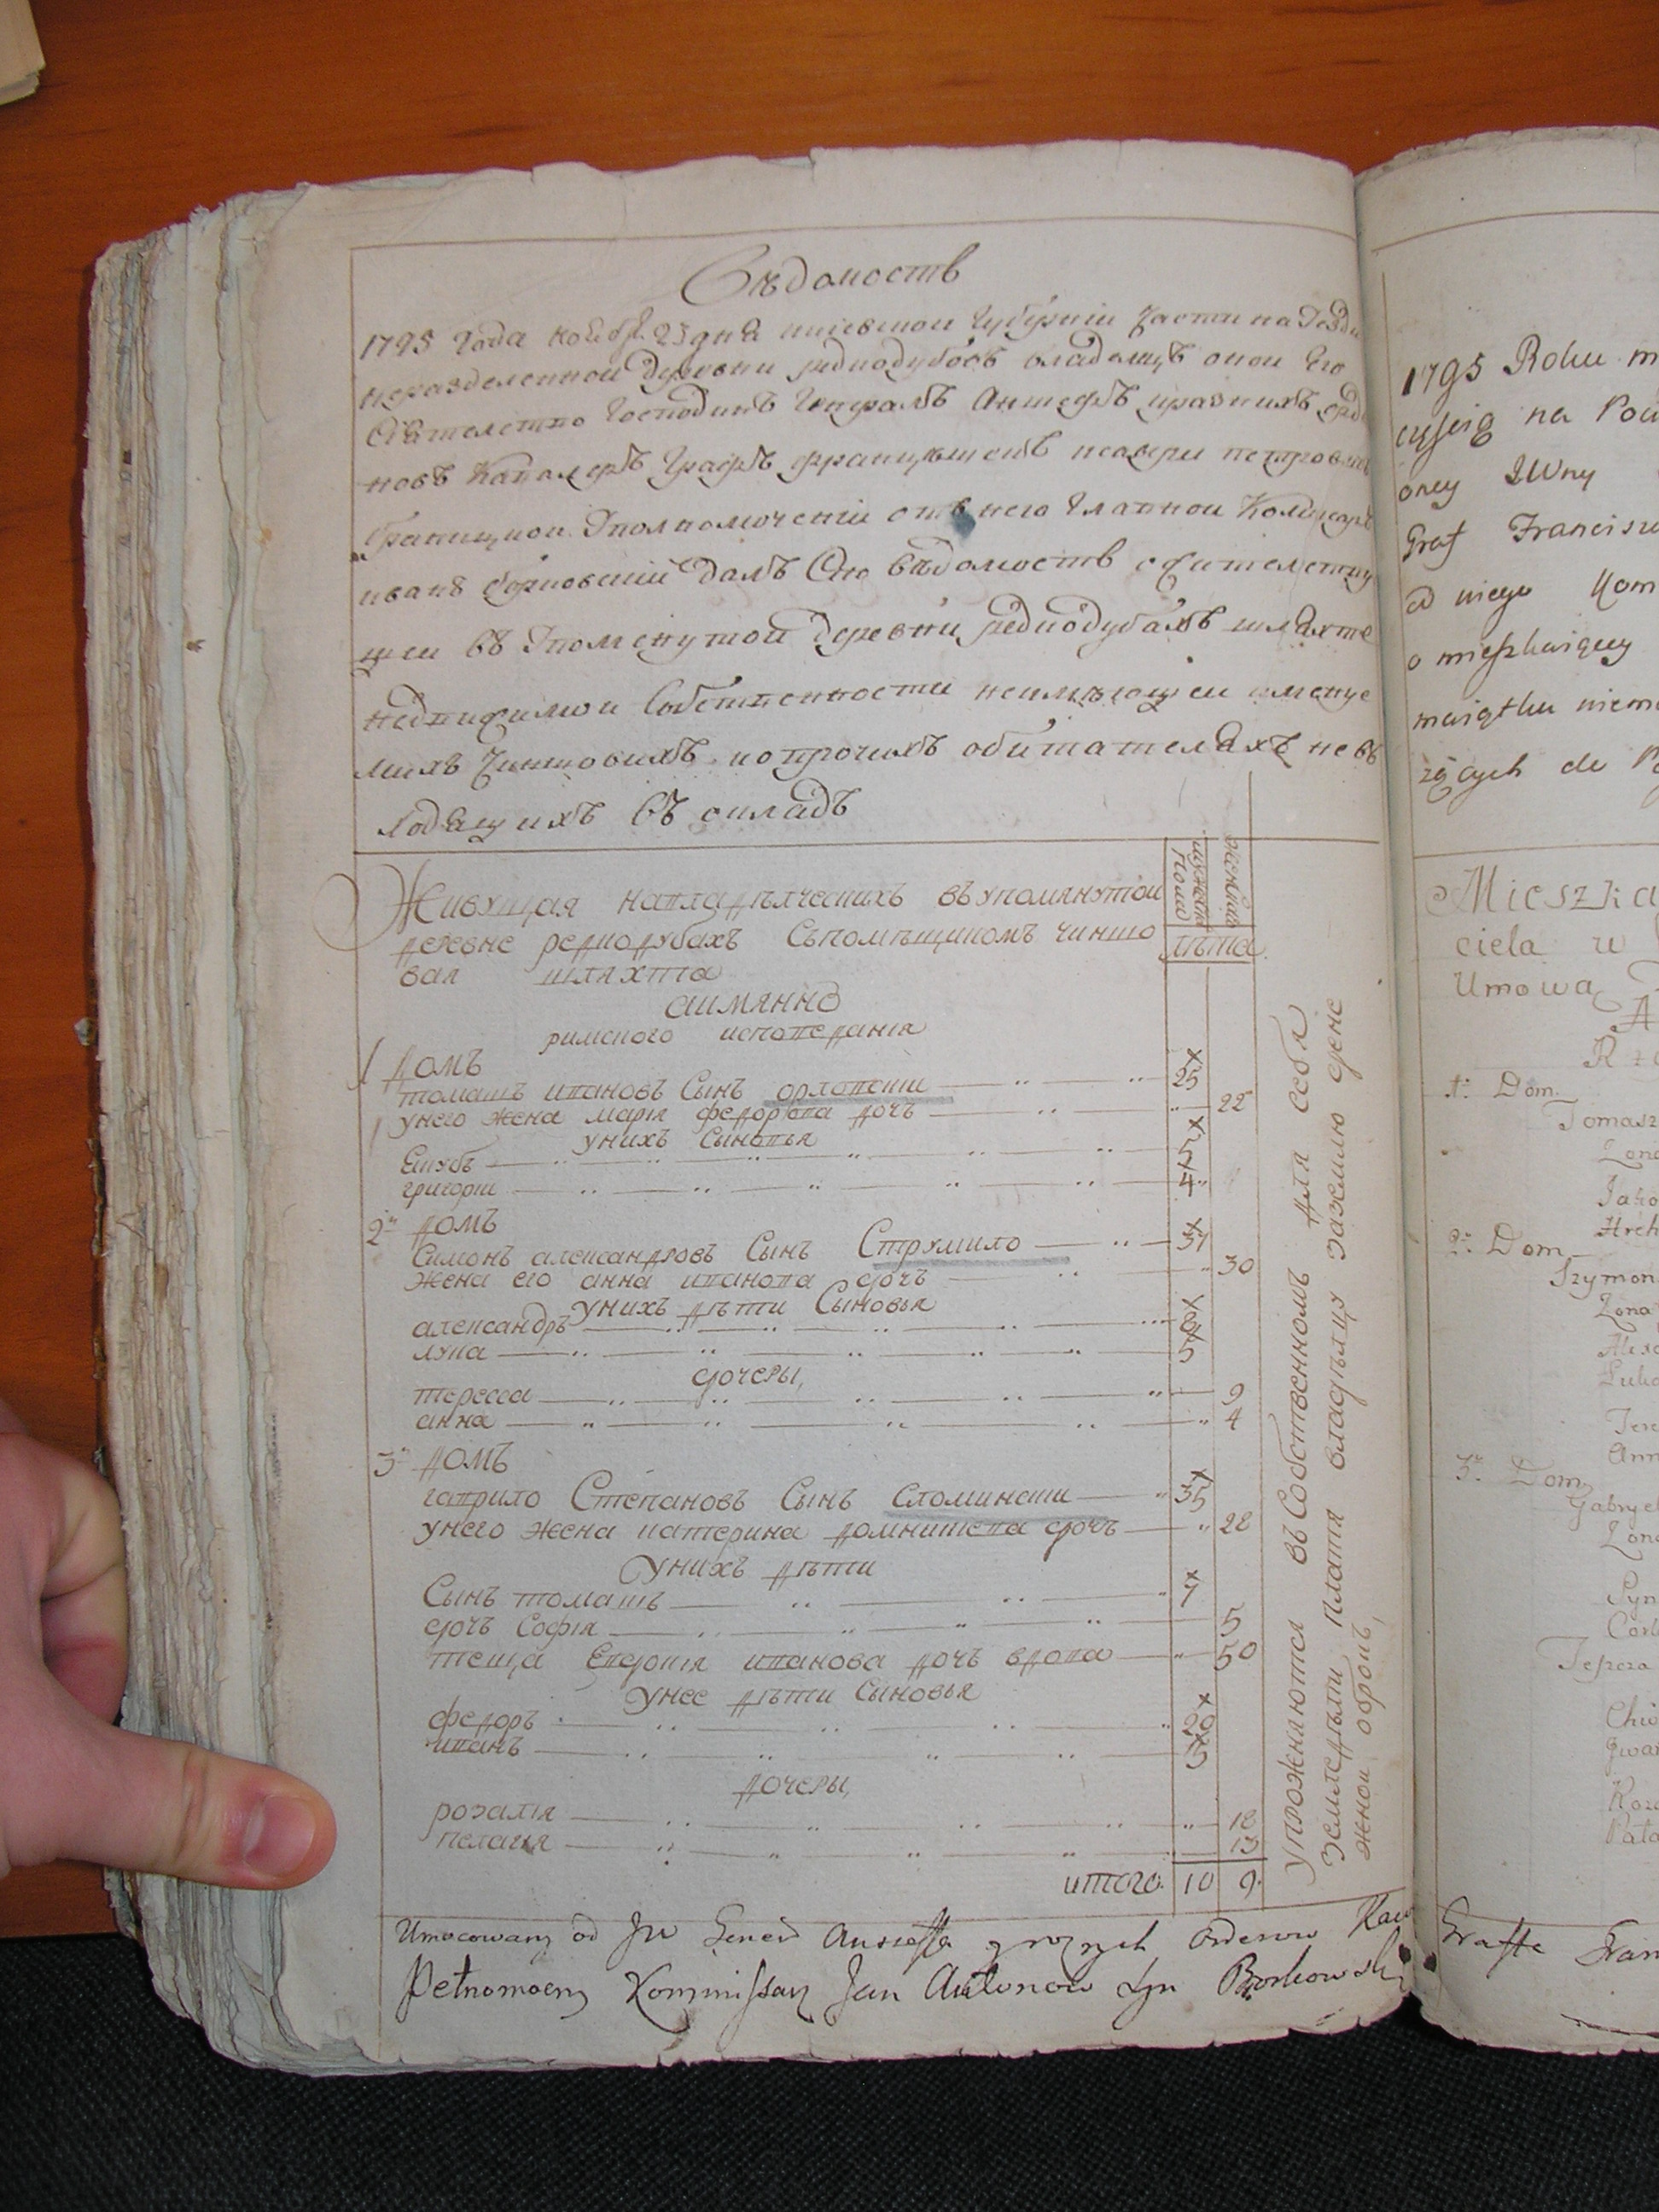 Вѣдомость
1795 года ноября 23 дня киевской губернии части на уезди
неразделенной деревни редкодубовъ владелецъ оной Его
Сиятелство Господинъ Генералъ Аншефъ и разнихъ орде
новъ Кавалеръ Графъ францишекъ ксавери петровичъ
браницкой. Уполномоченій отъ него Главной Комисаръ
иванъ борковскій далъ Сію вѣдомость о жителству
щей въ Упомянутой деревни редкодубахъ шляхте
недвижимой Собственности неимѣющей именуе
михъ Чиншовихъ и о прочихъ обитателяхъ не въ
ходящихъ въ окладъ
Живущая навладѣлческихъ въупомянутой
деревне редкодубахъ Съпомѣщикомъ чиншо
вая шляхта
аимянно
римского исповедания
мужеска полу
женска
лѣта
1 домъ
томашъ ивановъ Сынъ орловский 25
унего жена мария федорова дочъ 22
унихъ Сыновья
Якубъ 5
григорий 4
2й домъ
Симонъ александровъ Сынъ Струмило 37
жена его анна иванова дочъ 30
унихъ дѣти Сыновья
александръ 8
лука 5
дочеры,
тересса 9
анна 4
3й домъ
гаврило Степановъ Сынъ Словинский 35
унего жена катерина доминикова дочъ 28
Унихъ дѣти
Сынъ томашъ 7
дочъ Софія 5
теща Евфрония иванова дочъ вдова 50
Унее дѣти Сыновья
федоръ 20
иванъ 15
дочеры,
розалія 18
пелагия 13
итого. 10 9.
Упрожняются въ Собственномъ для себя
земледѣлии, платя владѣлцу заземлю дене
жной оброкъ,
Umocowany od JW Generał Anszeffa y roznych Orderow Kaw
Pełnomocny Kommissarz Jan Antonow Syn Borkowski
1795 Roku m
częscią na Pow
oney JWny
Graf Francisz
od niego Kom
o mieszkaiącey
maiątku niema
żących do P
Mieszka
ciela w
Umowa
A
Rzy
1o Dom.
Tomasz
Zona
Jako
Hreh
2o Dom
Szymon
Zona
Alexa
Luka
Tere
Anna
3o Dom
Gabryel
Zona
Syn
Cork
Tescza
Chwe
Jwan
Roza
Pala
Graffa Fran